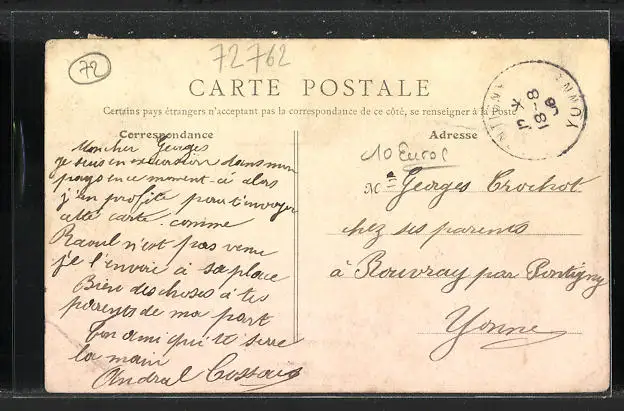 72
72762
CARTE POSTALE
Certains pays étrangers n'acceptant pas la correspondance de ce côté, se renseigner à la Poste
Correspondance
Mon cher Georges
je suis en excursion dans mon
pays en ce moment-ci alors
j'en profite pour t'envoyer
cette carte. comme
Raoul n'est pas venu
je l'envoie à sa place
Bien des choses à tes
parents de ma part
ton ami qui te serre
la main
Andral
Adresse
10 Euros
M Georges Crochot
chez ses parents
à Rouvray par Pontigny
Yonne
YONNE
18-8